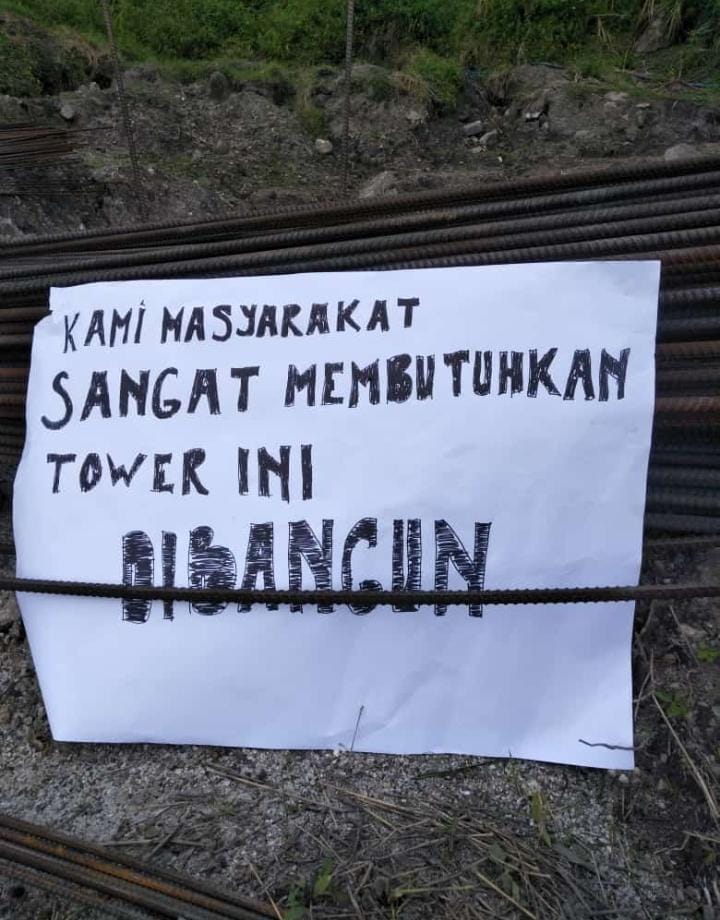 KAMi MASYARAKAT
SANGAT MEMBUTUHKAN
TOWER INI
DIBANGUN